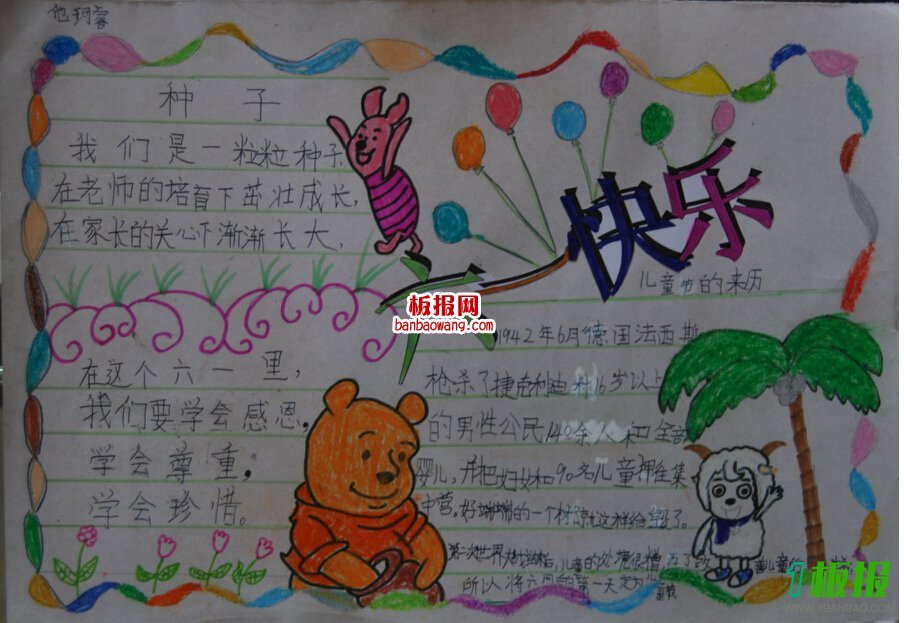 种子
我们是一粒粒种子
在老师的培育下茁壮成长，
在家长的关心下渐渐长大，
在这个六一里，
我们要学会感恩，
学会尊重，
学会珍惜。
六一快乐
儿童节的来历
1942年6月德国法西斯
枪杀了捷克利迪村16岁以上
的男性公民140余人和全部
婴儿，并把妇女和90名儿童押往集
中营。好端端的一个村就这样给毁了。
第二次世界大战结束后，儿童的处境很糟
所以将六月的第一天定为儿童节
板报网
banbaowang.com
1板报
WWW.1BANBAO.COM